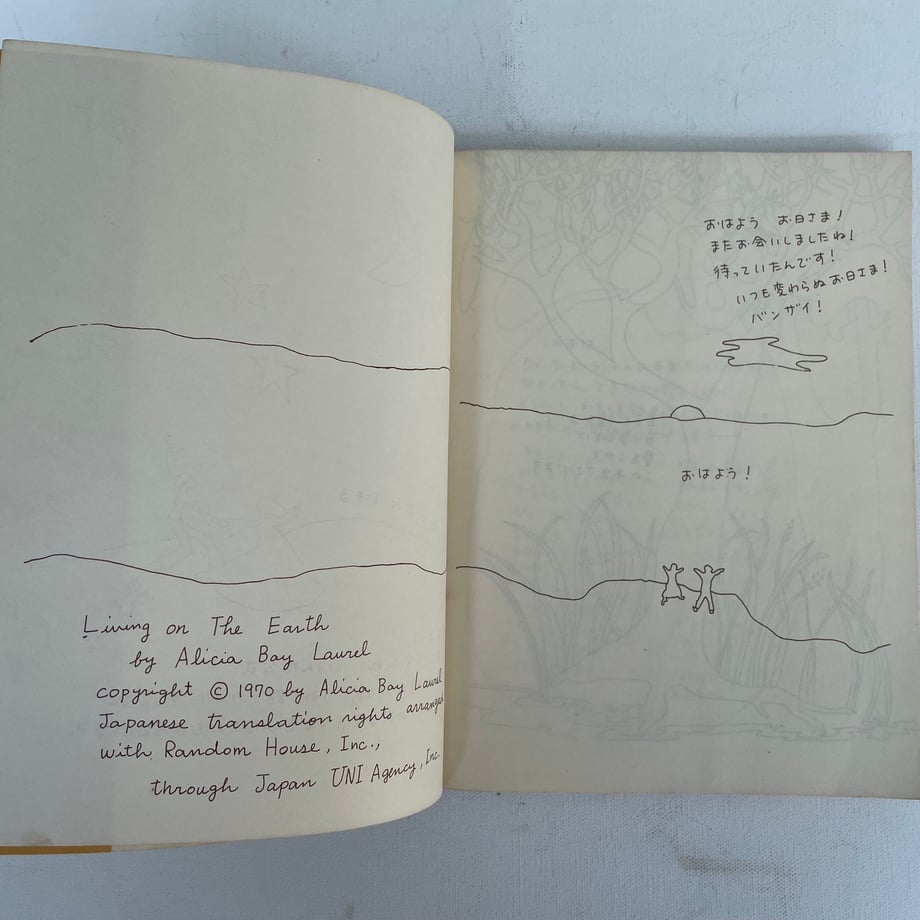 Living on The Earth
by Alicia Bay Laurel
copyright © 1970 by Alicia Bay Laurel
Japanese translation rights arranged
with Random House, Inc.,
through Japan UNI Agency, Inc.
おはよう お日さま!
またお会いしましたね!
待っていたんです!
いつも変わらぬお日さま!
バンザイ!
おはよう!